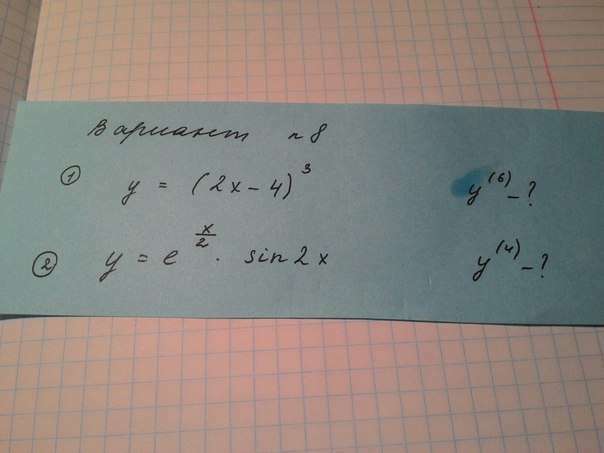 Вариант n 8
① y = (2x - 4)³ y⁽⁶⁾ - ?
② y = e^(x/2) · sin 2x y⁽⁴⁾ - ?